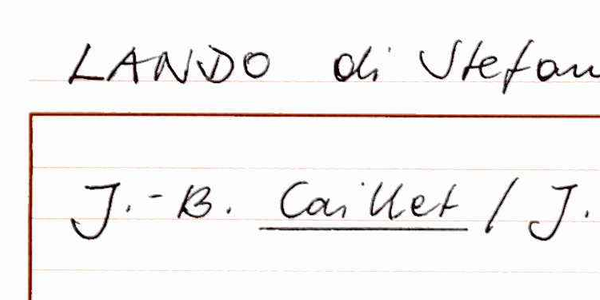 LANDO di Stefan
J.-B. Caillet / J.